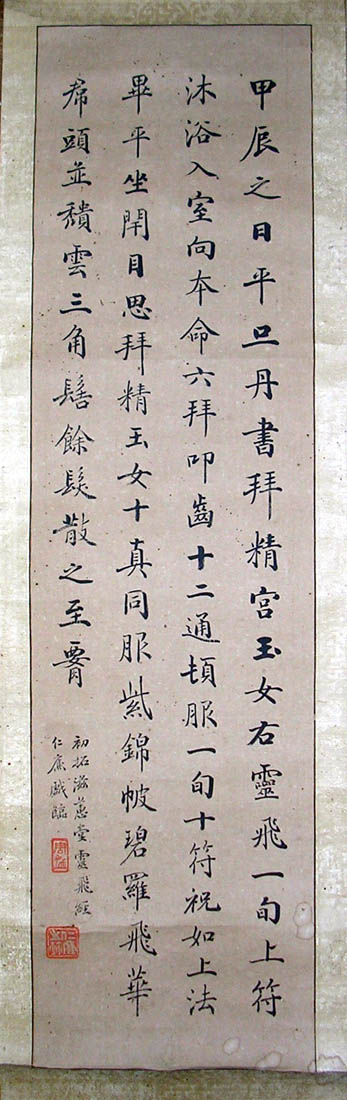 甲辰之日平旦丹書拜精宮玉女右靈飛一旬上符
沐浴入室向本命六拜叩齒十二通頓服一旬十符祝如上法
畢平坐閇目思拜精玉女十真同服紫錦帔碧羅飛華
帬頭並穨雲三角髻餘髮散之至𦝫
初拓滋蕙堂靈飛經
仁廉臨